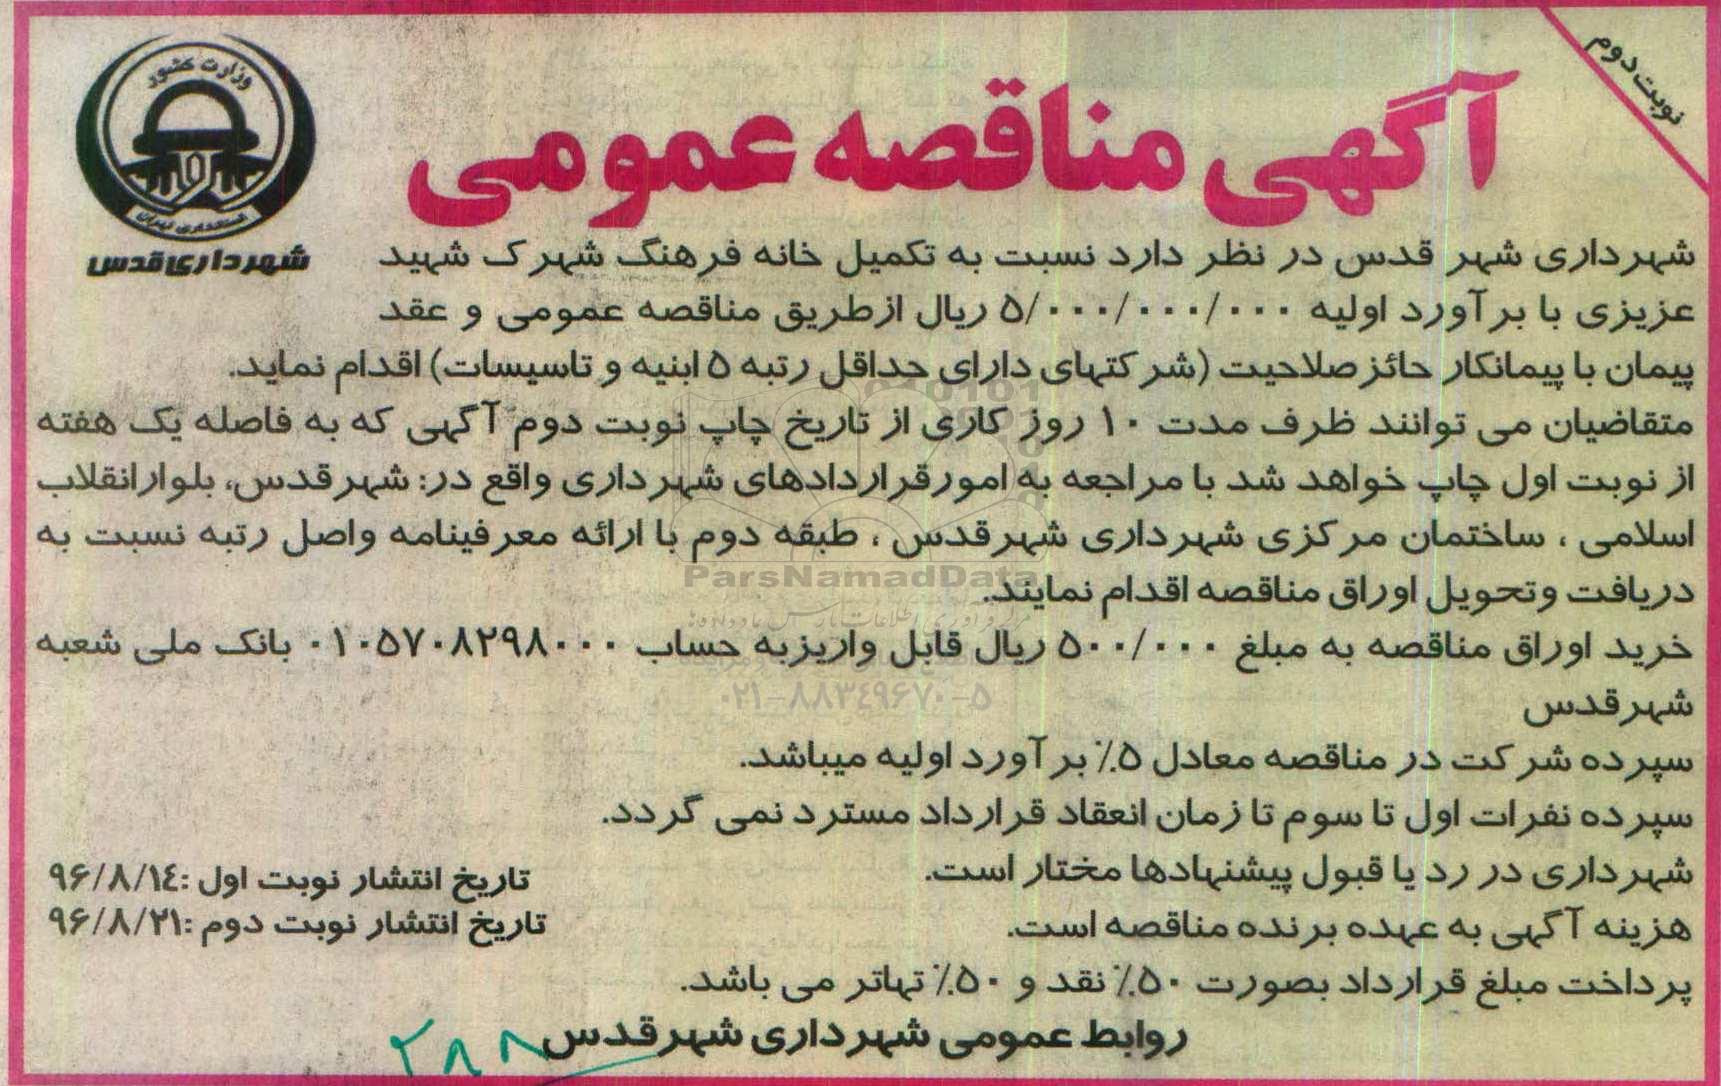 نوبت دوم
وزارت کشور
استانداری تهران
شهرداری قدس
آگهی مناقصه عمومی
شهرداری شهر قدس در نظر دارد نسبت به تکمیل خانه فرهنگ شهرک شهید
عزیزی با برآورد اولیه ۵/۰۰۰/۰۰۰/۰۰۰ ریال از طریق مناقصه عمومی و عقد
پیمان با پیمانکار حائز صلاحیت (شرکتهای دارای حداقل رتبه ۵ ابنیه و تاسیسات) اقدام نماید.
متقاضیان می توانند ظرف مدت ۱۰ روز کاری از تاریخ چاپ نوبت دوم آگهی که به فاصله یک هفته
از نوبت اول چاپ خواهد شد با مراجعه به امور قراردادهای شهرداری واقع در: شهرقدس، بلوار انقلاب
اسلامی ، ساختمان مرکزی شهرداری شهرقدس ، طبقه دوم با ارائه معرفینامه واصل رتبه نسبت به
دریافت و تحویل اوراق مناقصه اقدام نمایند.
خرید اوراق مناقصه به مبلغ ۵۰۰/۰۰۰ ریال قابل واریز به حساب ۰۱۰۵۷۰۸۲۹۸۰۰۰ بانک ملی شعبه
شهرقدس
سپرده شرکت در مناقصه معادل ۵٪ برآورد اولیه میباشد.
سپرده نفرات اول تا سوم تا زمان انعقاد قرارداد مسترد نمی گردد.
شهرداری در رد یا قبول پیشنهادها مختار است.
هزینه آگهی به عهده برنده مناقصه است.
پرداخت مبلغ قرارداد بصورت ۵۰٪ نقد و ۵۰٪ تهاتر می باشد.
تاریخ انتشار نوبت اول :۹۶/۸/۱۴
تاریخ انتشار نوبت دوم :۹۶/۸/۲۱
روابط عمومی شهرداری شهرقدس
۲۸۸
ParsNamadData
۰۲۱-۸۸۳۴۹۶۷۰-۵